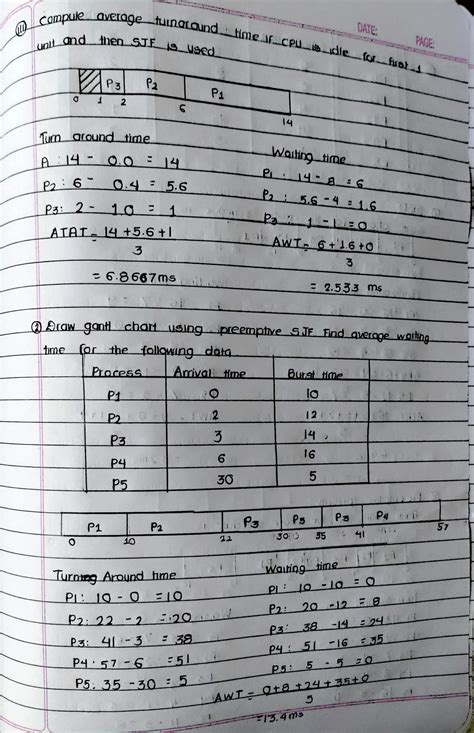 DATE:
PAGE:
(iii) Compute average turnaround time if CPU is idle for first 1
unit and then SJF is used
P3 P2 P1
0 1 2 6 14
Turn around time
Waiting time
A : 14 - 0.0 = 14
P1 : 14 - 8 = 6
P2 : 6 - 0.4 = 5.6
P2 : 5.6 - 4 = 1.6
P3 : 2 - 1.0 = 1
P3 : 1 - 1 = 0
ATAT = 14 + 5.6 + 1
3
AWT = 6 + 1.6 + 0
3
= 6.8667ms
= 2.533 ms
(2) Draw gantt chart using preemptive SJF Find average waiting
time for the following data
Process Arrival time Burst time
P1 0 10
P2 2 12
P3 3 14
P4 6 16
P5 30 5
P1 P2 P3 P5 P3 P4
0 10 22 30 35 41 57
Turning Around time
Waiting time
P1 : 10 - 0 = 10
P1 : 10 - 10 = 0
P2 : 22 - 2 = 20
P2 : 20 - 12 = 8
P3 : 41 - 3 = 38
P3 : 38 - 14 = 24
P4 : 57 - 6 = 51
P4 : 51 - 16 = 35
P5 : 35 - 30 = 5
P5 : 5 - 5 = 0
AWT = 0+8+24+35+0
5
= 13.4ms